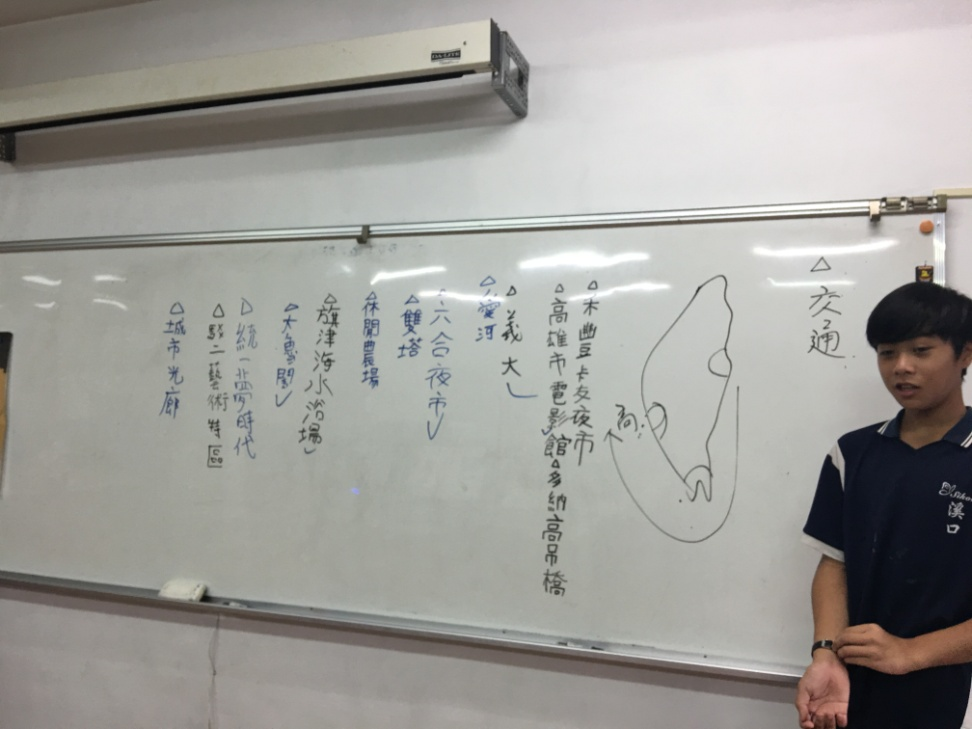 △交通
高
△木豐豆卡友夜市
△高雄市電影館
△多納高吊橋
△義大
△愛河
△六合夜市
△雙塔
△休閒農場
△旗津海水浴場
△大魯閣
△統一夢時代
△駁二藝術特區
△城市光廊
溪口